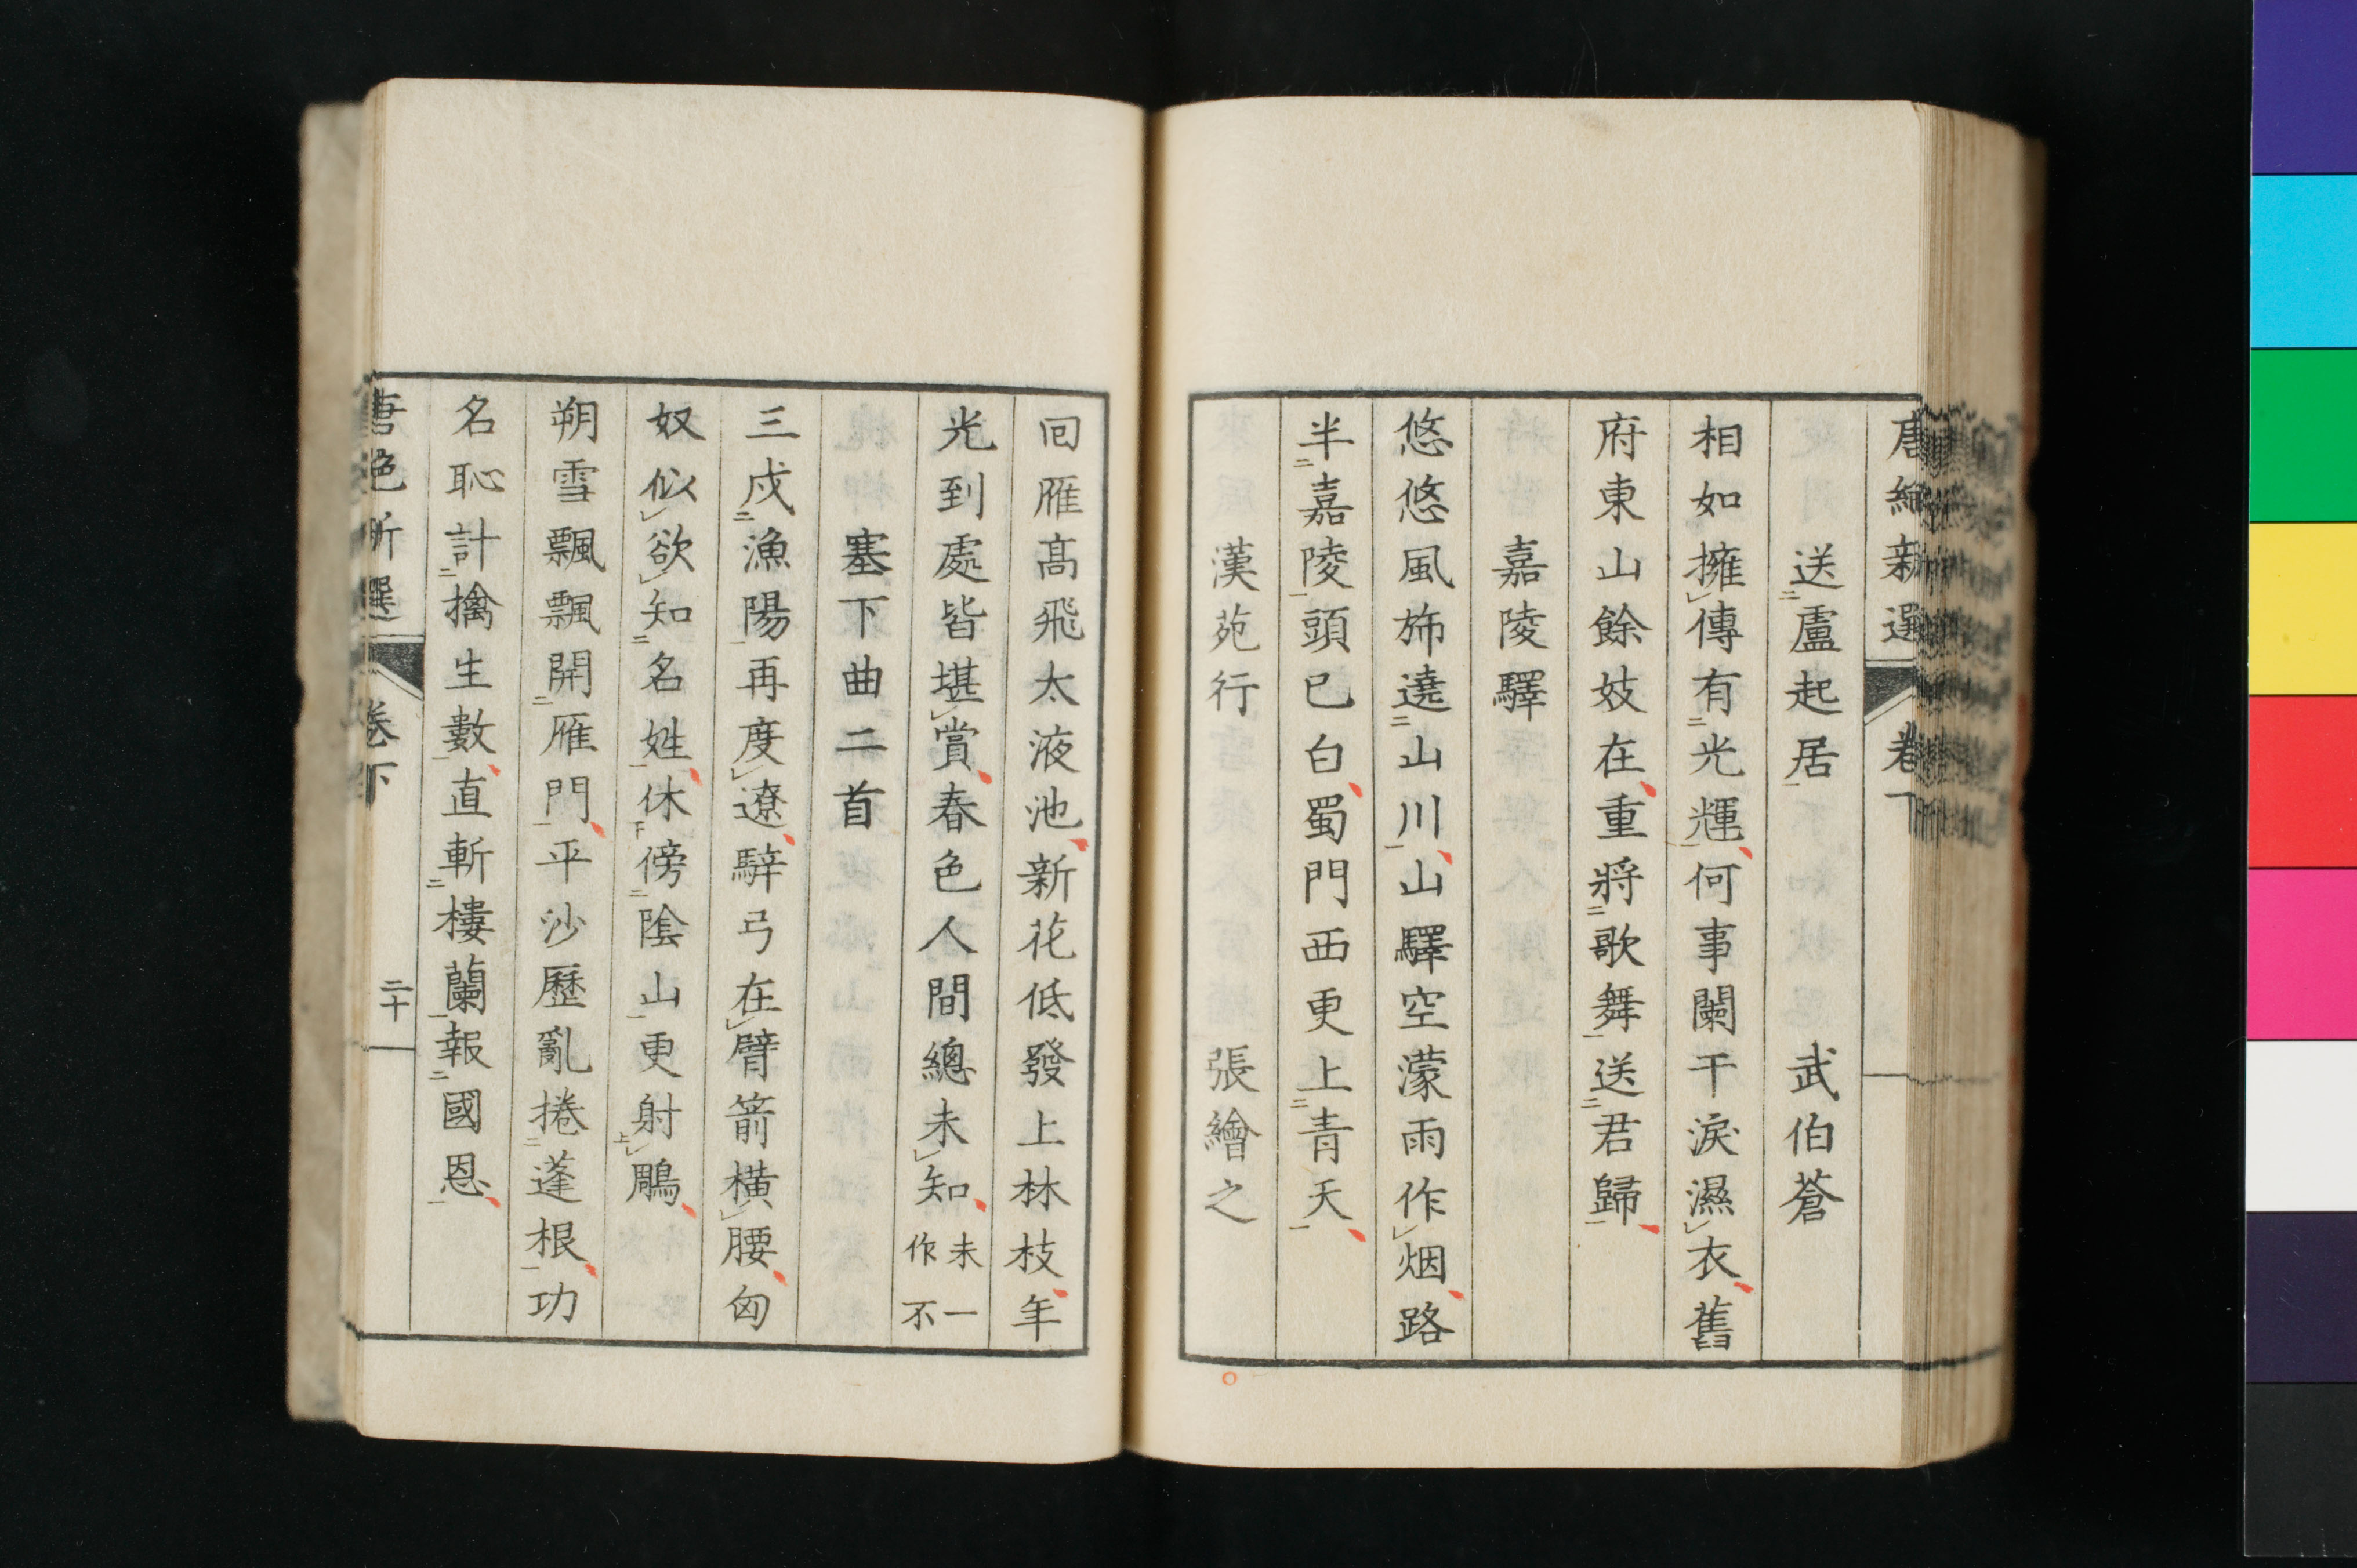 唐絶新選 卷下
送盧起居 武伯蒼
相如擁傳有光輝何事闌干淚濕衣舊
府東山餘妓在重將歌舞送君歸
嘉陵驛
悠悠風斾遶山川山驛空濛雨作烟路
半嘉陵頭已白蜀門西更上青天
漢苑行 張繪之
回雁高飛太液池新花低發上林枝年
光到處皆堪賞春色人間總未知 未一作不
塞下曲二首
三戍漁陽再度遼騂弓在臂箭橫腰匈
奴似欲知名姓休傍陰山更射鵰
朔雪飄飄開雁門平沙歷亂捲蓬根功
名恥計擒生數直斬樓蘭報國恩
唐絶新選 卷下 二十